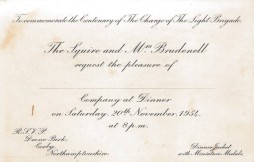 To commemorate the Centenary of The Charge of The Light Brigade.
The Squire and Mrs Brudenell
request the pleasure of
Company at Dinner
on Saturday, 20th November, 1954.
at 8 p.m.
R.S.V.P.
Deene Park,
Corby,
Northamptonshire.
Dinner Jacket
with Miniature Medals.